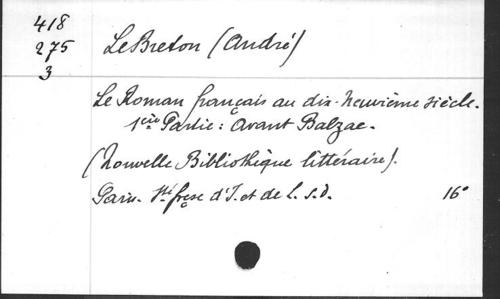 418
275
3
LeBreton (André)
Le Roman français au dix-neuvième siècle.
1ère Partie : Avant Balzac.
(Nouvelle Bibliothèque littéraire).
Paris. Sté frçse d'I. et de L. s.d. 16°